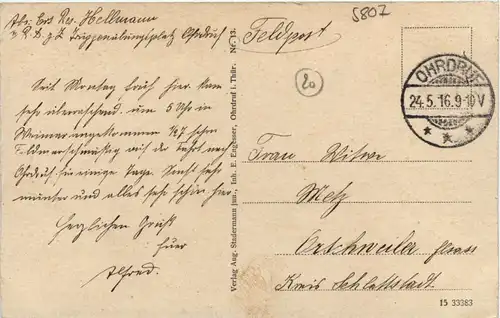 Abs: Ers Res. Hellmann
Truppenübungsplatz Ohrdruf
5807
Feldpost
20
OHRDRUF
24.5.16.9-10V
Seit Montag Früh hier. Kam
sehr überraschend. um 5 Uhr in
Weimar angekommen ½8 schon
Feldmarschmäßig auf der Fahrt nach
Ohrdruf für einige Tage. Sonst sehr
munter und alles sehr schön hier.
Herzlichen Gruß
Euer
Alfred.
Verlag Aug. Studermann jun., Inh. E. Engesser, Ohrdruf i. Thür. Nr. 13.
Frau Witwe
Metz
Orschweiler Elsass
Kreis Schlettstadt.
15 33383